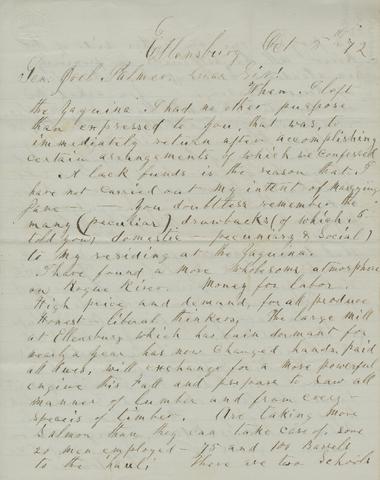 Ellensburg Oct 5th 72
Gen. Joel Palmer, Dear Sir!
When I left
the Yaquina I had no other purpose
than expressed to you, that was, to
immediately return after accomplishing
certain arrangements of which we conferred
A lack funds is the reason that I
have not carried out my intent of marrying
Jane — — You doubtless remember the
many (peculiar) drawbacks (of which, I
told you, domestic — pecuniary & social)
to my residing at the Yaquina.
I have found a more wholesome atmosphere
on Rogue River. Money for labor.
High price and demand, for all produce
Honest — liberal thinkers. The large mill
at Ellensburg which has lain dormant for
nearly a year has now changed hands, paid
all dues, will exchange for a more powerful
engine this Fall and prepare to saw all
manner of lumber and from every
specis of timber. Are taking more
Salmon than they can take care of, some
20 men employed — 75 and 100 Barrels
to the haul; There are two Schools